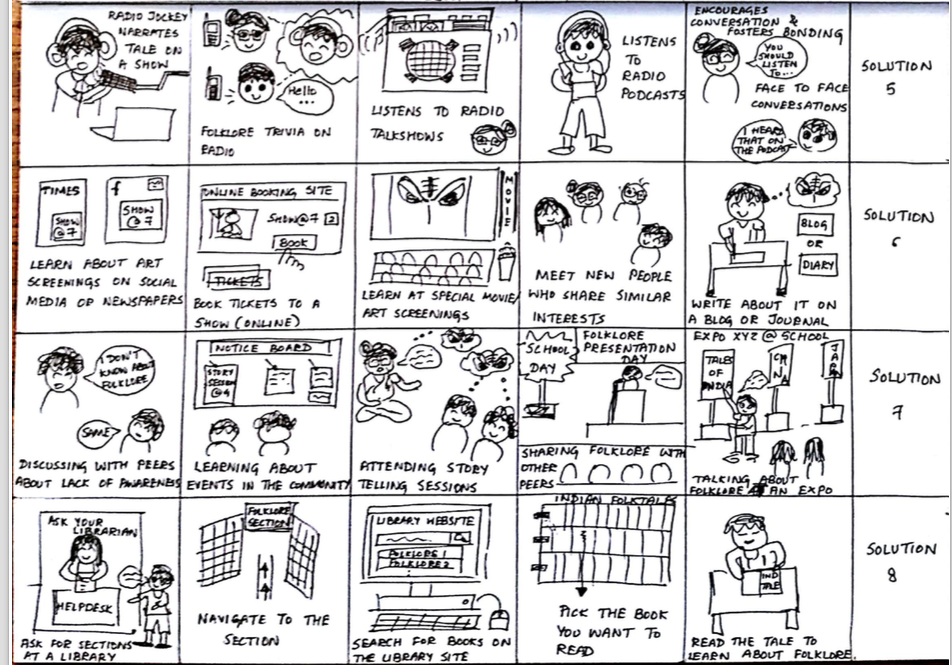 RADIO JOCKEY
NARRATES
TALE ON
A SHOW
Hello
...
FOLKLORE TRIVIA ON
RADIO
LISTENS TO RADIO
TALKSHOWS
LISTENS
TO
RADIO
PODCASTS
ENCOURAGES
CONVERSATION &
FOSTERS BONDING
YOU
SHOULD
LISTEN
TO...
FACE TO FACE
CONVERSATIONS
I HEARD
THAT ON
THE PODCAST
SOLUTION
5
TIMES
SHOW
@ 7
f
SHOW
@ 7
LEARN ABOUT ART
SCREENINGS ON SOCIAL
MEDIA OR NEWSPAPERS
ONLINE BOOKING SITE
SHOW@7 2
BOOK
TICKETS
BOOK TICKETS TO A
SHOW (ONLINE)
MOVIE
LEARN AT SPECIAL MOVIE/
ART SCREENINGS
MEET NEW PEOPLE
WHO SHARE SIMILAR
INTERESTS
BLOG
OR
DIARY
WRITE ABOUT IT ON
A BLOG OR JOURNAL
SOLUTION
6
I DON'T
KNOW ABOUT
FOLKLORE
SAME
DISCUSSING WITH PEERS
ABOUT LACK OF AWARENESS
NOTICE BOARD
STORY
SESSION
@4
LEARNING ABOUT
EVENTS IN THE COMMUNITY
ATTENDING STORY
TELLING SESSIONS
SCHOOL
DAY
FOLKLORE
PRESENTATION
DAY
SHARING FOLKLORE WITH
OTHER
PEERS
EXPO XYZ @ SCHOOL
TALES
OF
INDIA
CHINA
JAPAN
TALKING ABOUT
FOLKLORE AT AN EXPO
SOLUTION
7
ASK YOUR
LIBRARIAN
HELPDESK
ASK FOR SECTIONS
AT A LIBRARY
FOLKLORE
SECTION
NAVIGATE TO THE
SECTION
LIBRARY WEBSITE
FOLKLORE 1
FOLKLORE 2
SEARCH FOR BOOKS ON
THE LIBRARY SITE
INDIAN FOLKTALES
PICK THE BOOK
YOU WANT TO
READ
IND
TALE
READ THE TALE TO
LEARN ABOUT FOLKLORE.
SOLUTION
8